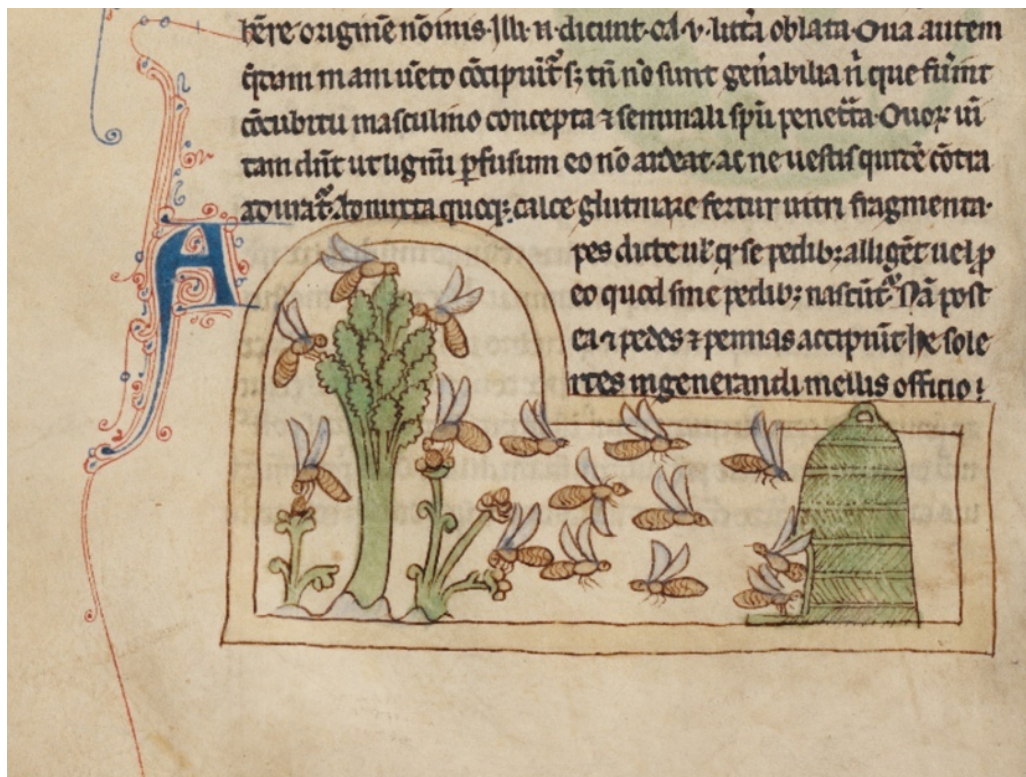 hēre originē nōmis. Illi .n. dicunt. .v. litt̄a oblata. Oua autem
q̄dam inani uēto cōcipiūt᷑ s; tn̄ nō sunt gen̄abilia n̄ que fūint
cōcubitu masculino concepta ⁊ seminali spū penet̄ta. Ouoꝝ uī
tam dn̄t ut lignū ꝑfusum eo nō ardeat. ac ne uestis cōtra
Admixta quoq; calce glutinare fertur uitri fragmenta.
Apes dicte ul̄ q̄ se pedib; alligēt uel ꝓ
eo quod sine pedib; nascūt᷑. Nā post
ea ⁊ pedes ⁊ pennas accipiūt. he sole
rtes in generandi mellis officio